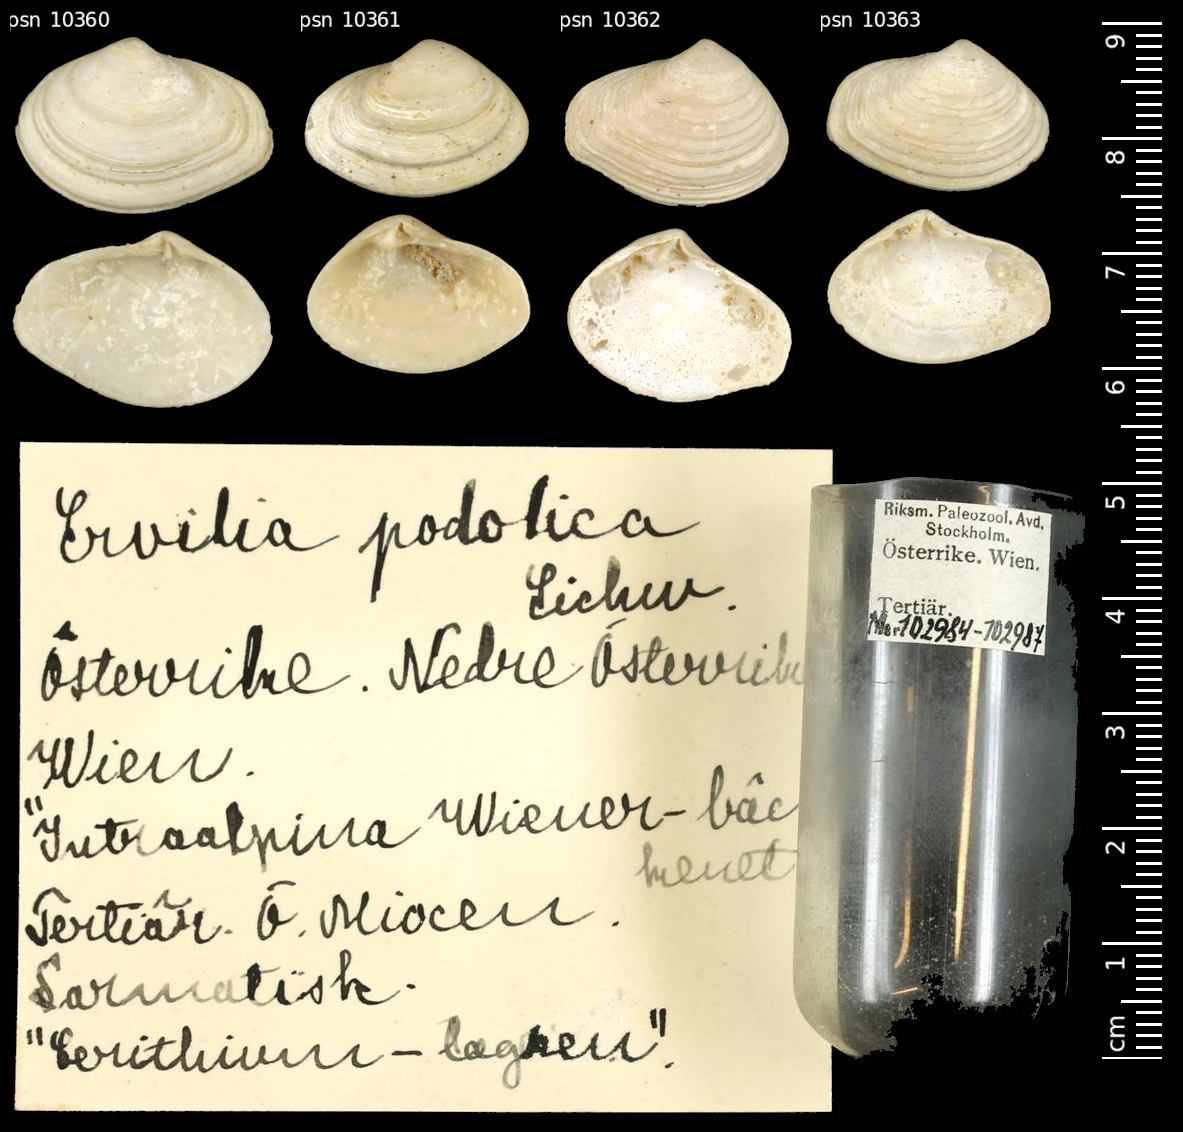 psn 10360
psn 10361
psn 10362
psn 10363
Ervilia podolica
Eichw.
Österrike. Nedre Österrike
Wien.
"Intraalpina Wiener-bäc
kenet
Tertiär. Ö. Miocen.
Sarmatisk.
"Cerithium-lagren".
Riksm. Paleozool. Avd.
Stockholm.
Österrike. Wien.
Tertiär.
N:r 102984-102987
9
8
7
6
5
4
3
2
1
cm